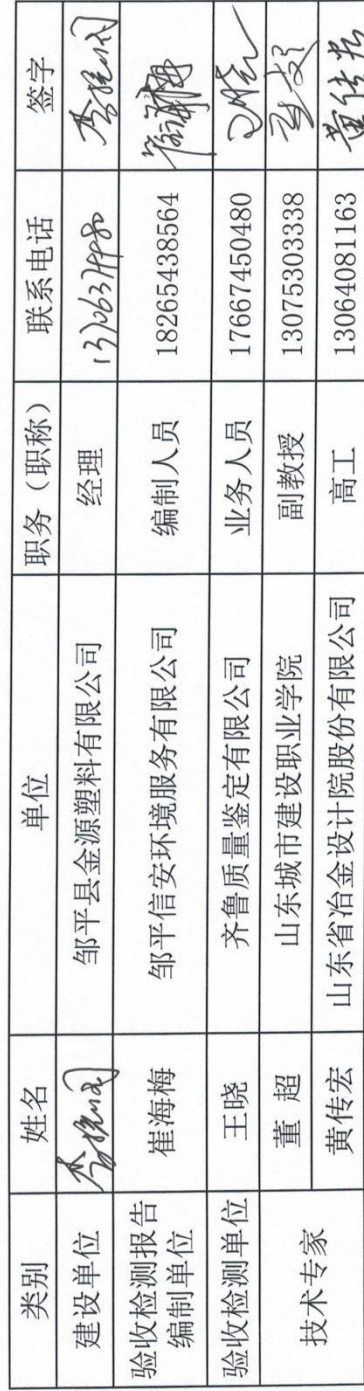 类别 姓名 单位 职务（职称） 联系电话 签字
建设单位 邹平县金源塑料有限公司 经理
验收检测报告编制单位 崔海梅 邹平信安环境服务有限公司 编制人员 18265438564
验收检测单位 王晓 齐鲁质量鉴定有限公司 业务人员 17667450480 王晓
技术专家 董超 山东城市建设职业学院 副教授 13075303338 董超
黄传宏 山东省冶金设计院股份有限公司 高工 13064081163 黄传宏